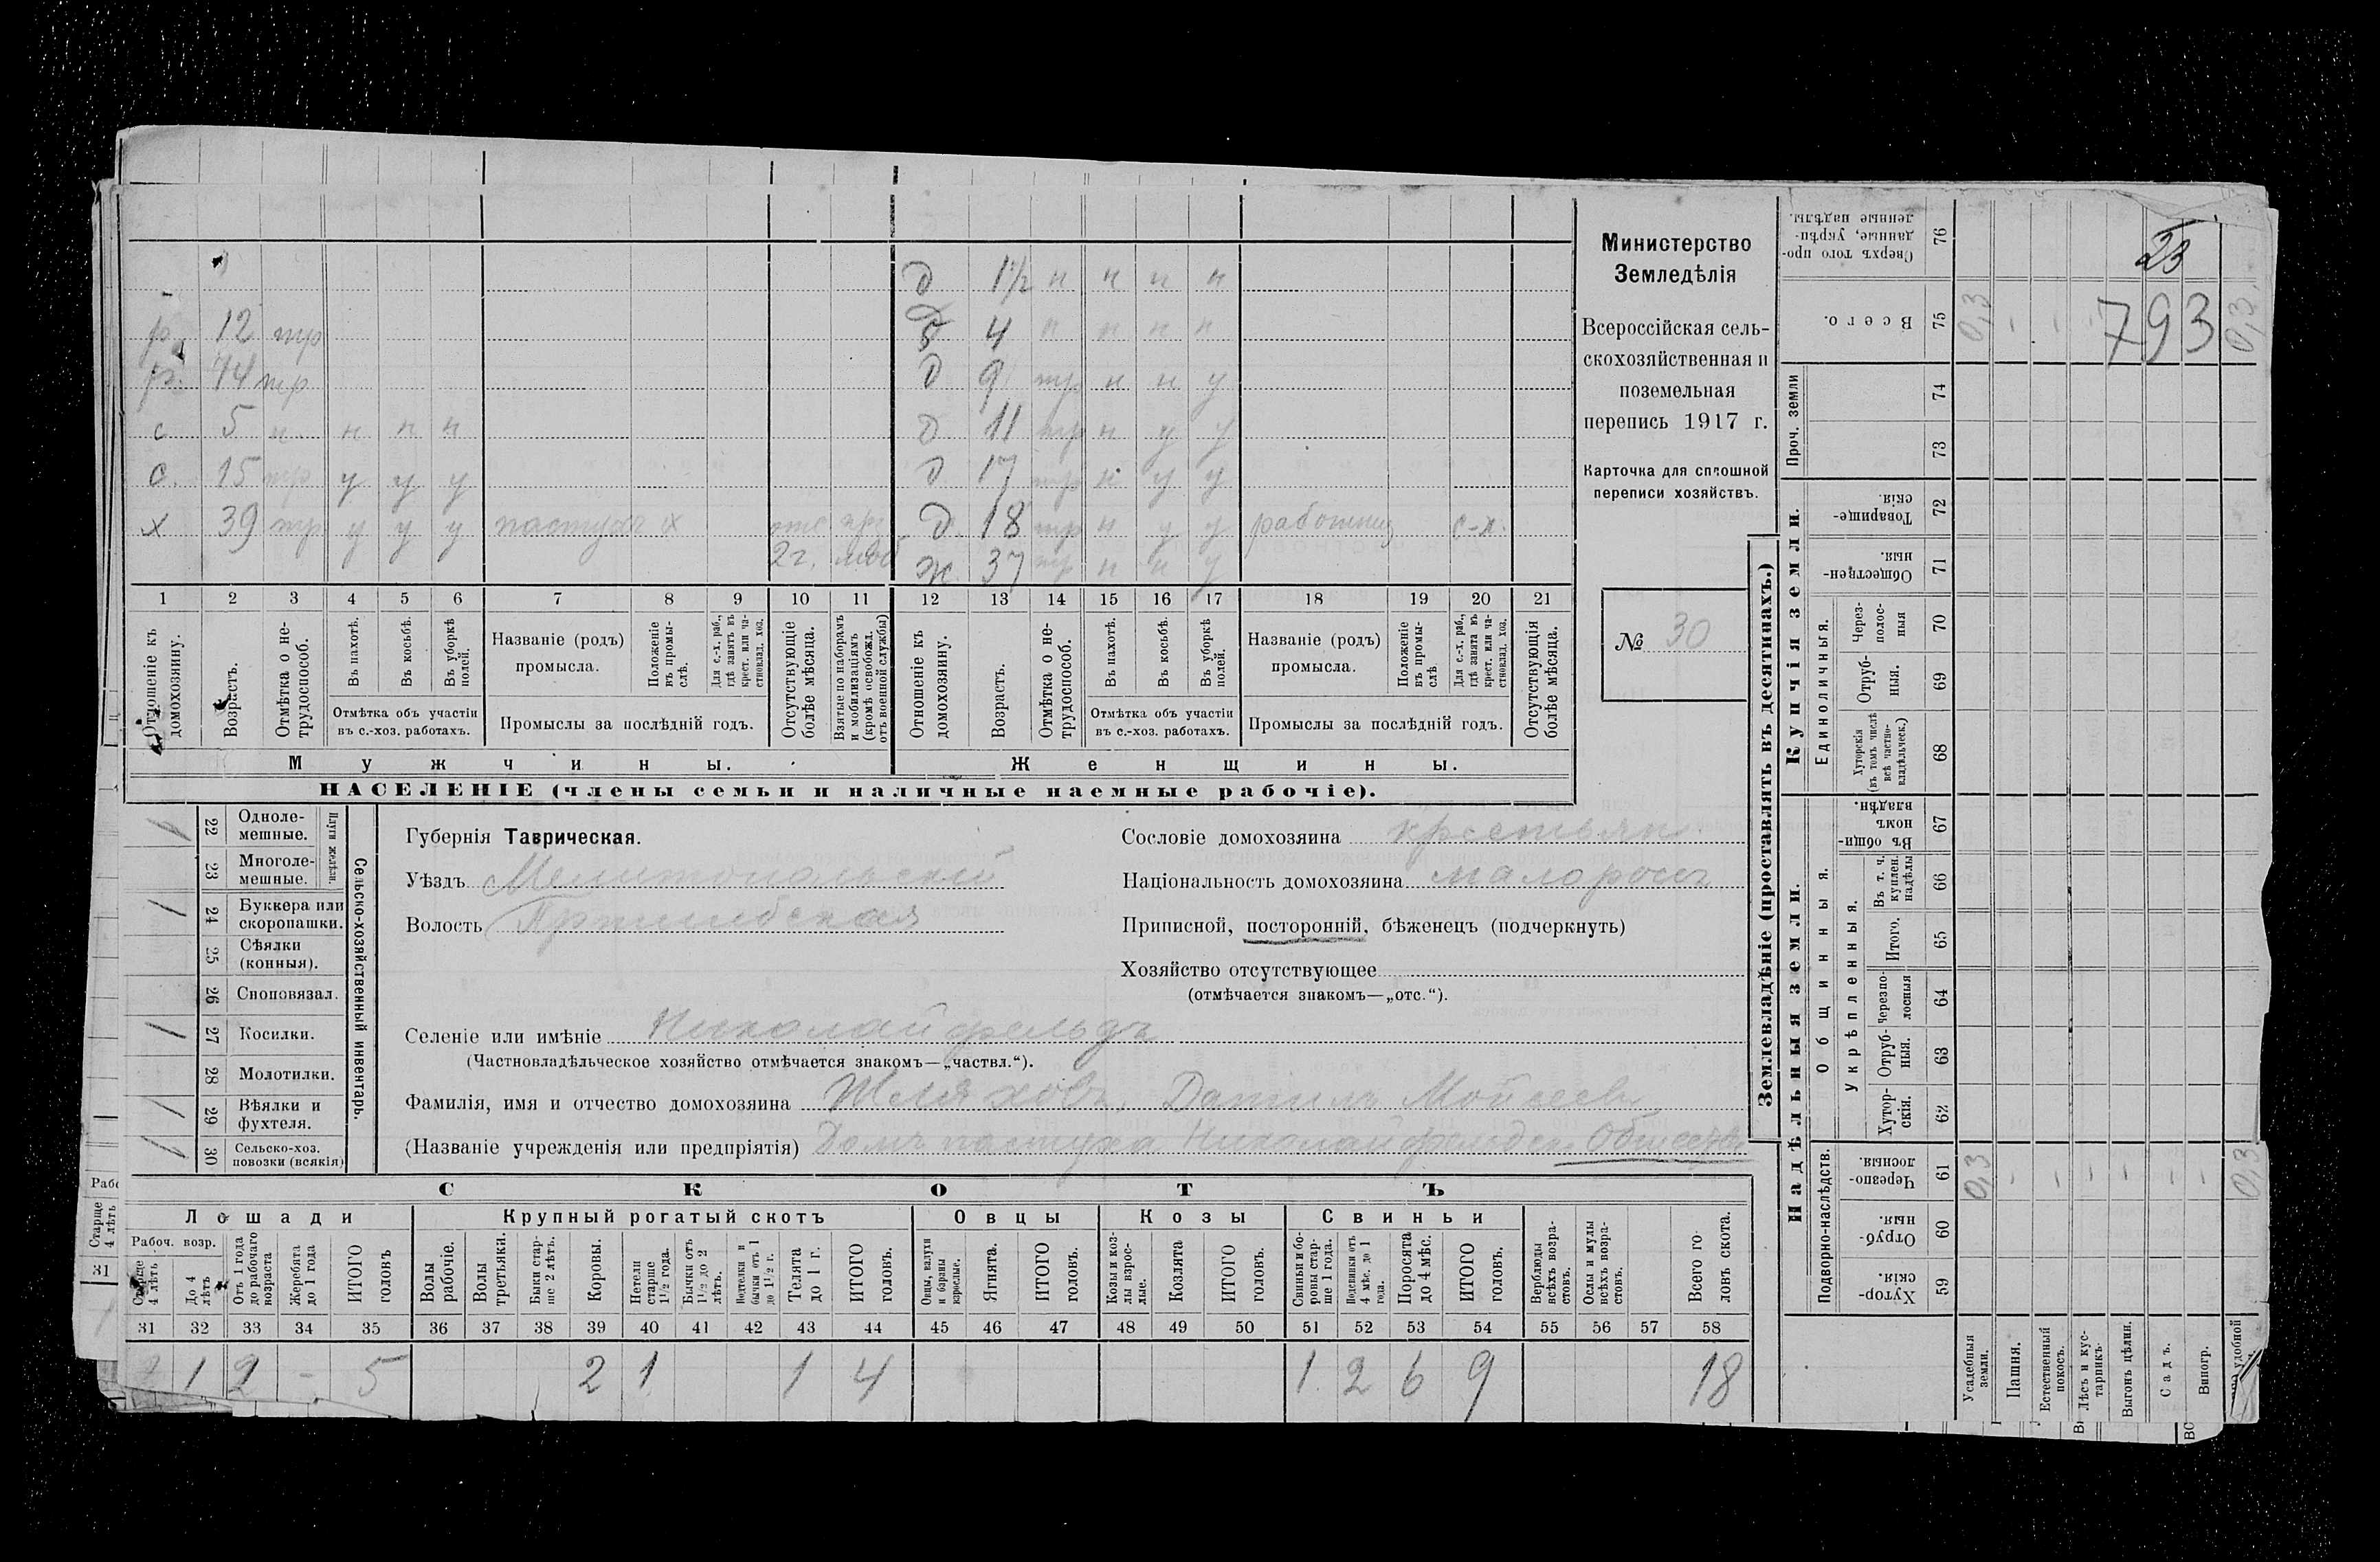 д 1½ н н н н
д 4 н н н н
р. 12 тр
д 9 тр н н у
р. 14 тр
с 5 н. н н н
д 11 тр н у у
с. 15 тр у у у
д 17 тр н у у
х 39 тр у у у пастух х 2 г. моб
д. 18 тр н у у работниц с-х.
ж. 37 тр н н у
1 2 3 4 5 6 7 8 9 10 11 12 13 14 15 16 17 18 19 20 21
Отношеніе къ домохозяину.
Возрастъ.
Отмѣтка о нетрудоспособ.
Въ пахотѣ.
Въ косьбѣ.
Въ уборкѣ полей.
Отмѣтка объ участіи въ с.-хоз. работахъ.
Названіе (родъ) промысла.
Положеніе въ промыслѣ.
Для с.-х. раб., гдѣ занятъ въ крест. или частновлад. хоз.
Промыслы за послѣдній годъ.
Отсутствующіе болѣе мѣсяца.
Взятые по наборамъ и мобилизаціямъ (кромѣ освобожд. отъ военной службы)
Отношеніе къ домохозяину.
Возрастъ.
Отмѣтка о нетрудоспособ.
Въ пахотѣ.
Въ косьбѣ.
Въ уборкѣ полей.
Отмѣтка объ участіи въ с.-хоз. работахъ.
Названіе (родъ) промысла.
Положеніе въ промыслѣ
Для с.-х. раб., гдѣ занята въ крест. или частновлад. хоз.
Промыслы за послѣдній годъ.
Отсутствующія болѣе мѣсяца.
Мужчины.
Женщины.
НАСЕЛЕНІЕ (члены семьи и наличные наемные рабочіе).
Министерство
Земледѣлія
Всероссійская сель-
скохозяйственная и
поземельная
перепись 1917 г.
Карточка для сплошной
переписи хозяйствъ.
№ 30
1 22 Однолемешные.
23 Многолемешные.
Плуги желѣзн.
1 24 Буккера или скоропашки.
25 Сѣялки (конныя).
26 Сноповязал.
1 27 Косилки.
28 Молотилки.
1 29 Вѣялки и фухтеля.
1 30 Сельско-хоз. повозки (всякія)
Сельско-хозяйственный инвентарь.
Губернія Таврическая.
Уѣздъ Мелитопольскій
Волость Пришибская
Сословіе домохозяина крестьян.
Національность домохозяина малоросъ
Приписной, посторонній, бѣженецъ (подчеркнуть)
Хозяйство отсутствующее
(отмѣчается знакомъ—„отс.“).
Селеніе или имѣніе Николайфельдъ
(Частновладѣльческое хозяйство отмѣчается знакомъ—„частвл.“).
Фамилія, имя и отчество домохозяина Шеляховъ, Данилъ Мойсеев
(Названіе учрежденія или предпріятія) Домъ пастуха Николайфельдск. Общества
СКОТЪ
Лошади
Крупный рогатый скотъ
Овцы
Козы
Свиньи
Рабоч. возр.
Старше 4 лѣтъ
До 4 лѣтъ
Отъ 1 года до рабочаго возраста
Жеребята до 1 года
ИТОГО головъ
Волы рабочіе.
Волы третьяки.
Быки старше 2 лѣтъ.
Коровы.
Нетели старше 1½ года.
Бычки отъ 1½ до 2 лѣтъ.
Телята до 1 г.
ИТОГО головъ.
Овцы, валухи и бараны взрослые.
Ягнята.
ИТОГО головъ.
Козы и козлы взрослые.
Козлята
ИТОГО головъ.
Свиньи и боровы старше 1 года.
Подсвинки отъ 4 мѣс. до 1 года.
Поросята до 4 мѣс.
ИТОГО головъ.
Верблюды всѣхъ возрастовъ.
Ослы и мулы всѣхъ возрастовъ.
Всего головъ скота.
31 32 33 34 35 36 37 38 39 40 41 42 43 44 45 46 47 48 49 50 51 52 53 54 55 56 57 58
2 1 2 - 5 2 1 1 4 1 2 6 9 18
Землевладѣніе (проставлять въ десятинахъ.)
Сверхъ того проданные, укрѣпленные надѣлы. 76
23
Всего. 75 0,3 793 0,3
Проч. земли 74
73
Купчія земли.
Товарищескія. 72
Общественныя. 71
Единоличныя.
Черезполосныя 70
Отрубныя. 69
Хуторскія (въ томъ числѣ всѣ частновладѣльческ.) 68
Надѣльныя земли.
Общинныя.
Въ общинномъ владѣн. 67
Укрѣпленныя.
Въ т. ч. куплен. надѣлы 66
Итого. 65
Черезполосныя 64
Отрубныя. 63
Хуторскія. 62
Подворно-наслѣдств.
Черезполосныя. 61 0,3 - - - - - - 0,3
Отрубныя. 60
Хуторскія. 59
Усадебныя земли.
Пашня.
Естественный покосъ.
Лѣсъ и кустарникъ.
Выгонъ цѣлин.
Садъ.
Виногр.
удобной
Старше 4 лѣтъ
31